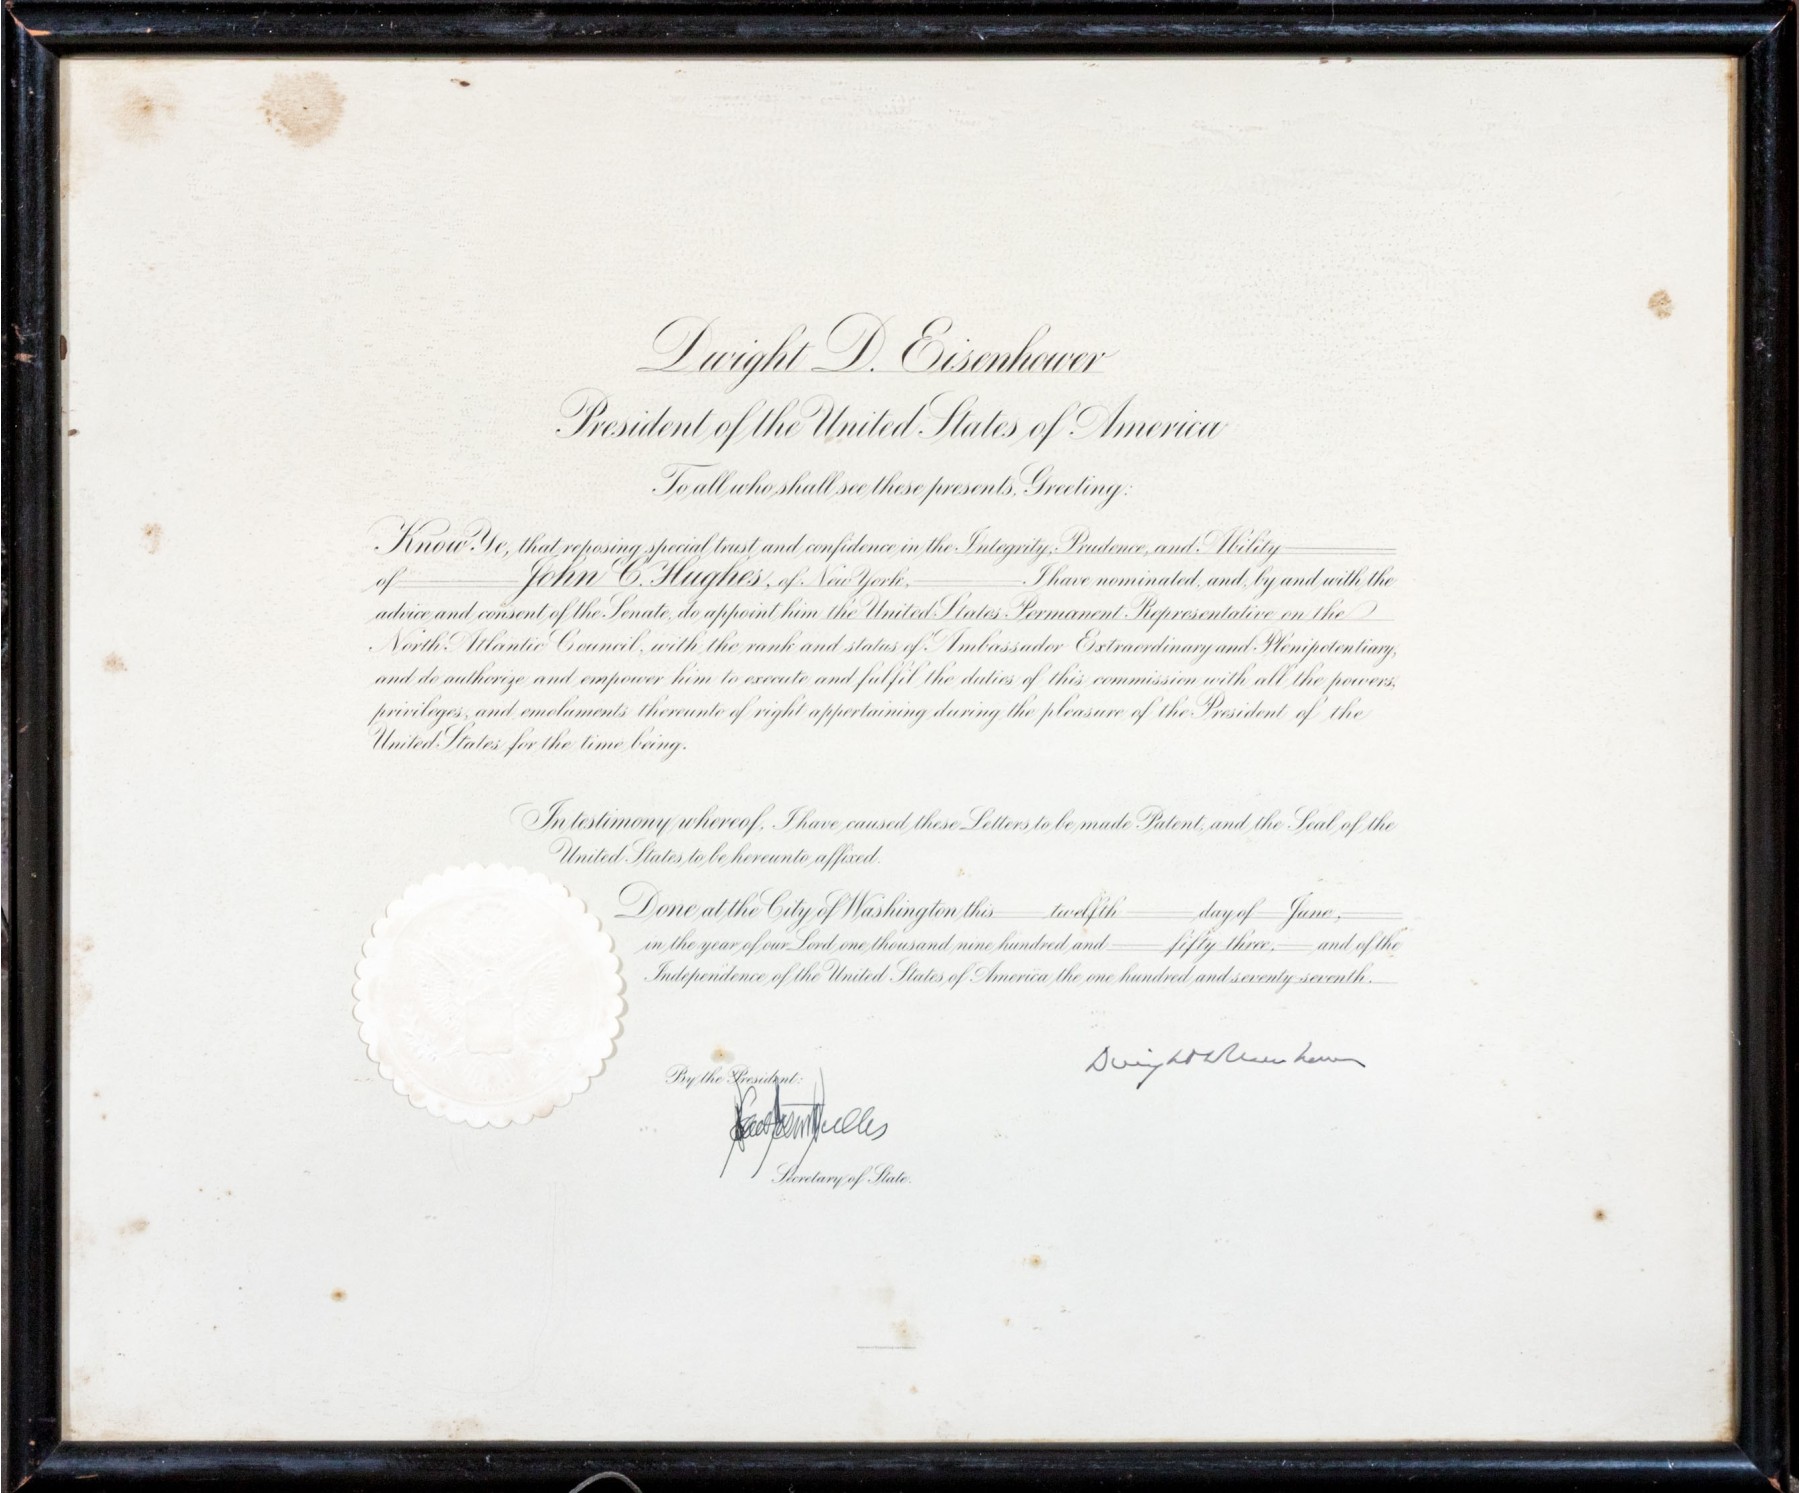 Dwight D. Eisenhower
President of the United States of America
To all who shall see these presents, Greeting:
Know Ye, that reposing special trust and confidence in the Integrity, Prudence, and Ability
of John C. Hughes, of New York, I have nominated, and, by and with the
advice and consent of the Senate, do appoint him the United States Permanent Representative on the
North Atlantic Council, with the rank and status of Ambassador Extraordinary and Plenipotentiary,
and do authorize and empower him to execute and fulfil the duties of this commission with all the powers,
privileges, and emoluments thereunto of right appertaining during the pleasure of the President of the
United States for the time being.
In testimony whereof, I have caused these Letters to be made Patent, and the Seal of the
United States to be hereunto affixed.
Done at the City of Washington this twelfth day of June,
in the year of our Lord one thousand nine hundred and fifty three, and of the
Independence of the United States of America the one hundred and seventy-seventh.
Dwight D Eisenhower
By the President:
John Foster Dulles
Secretary of State.